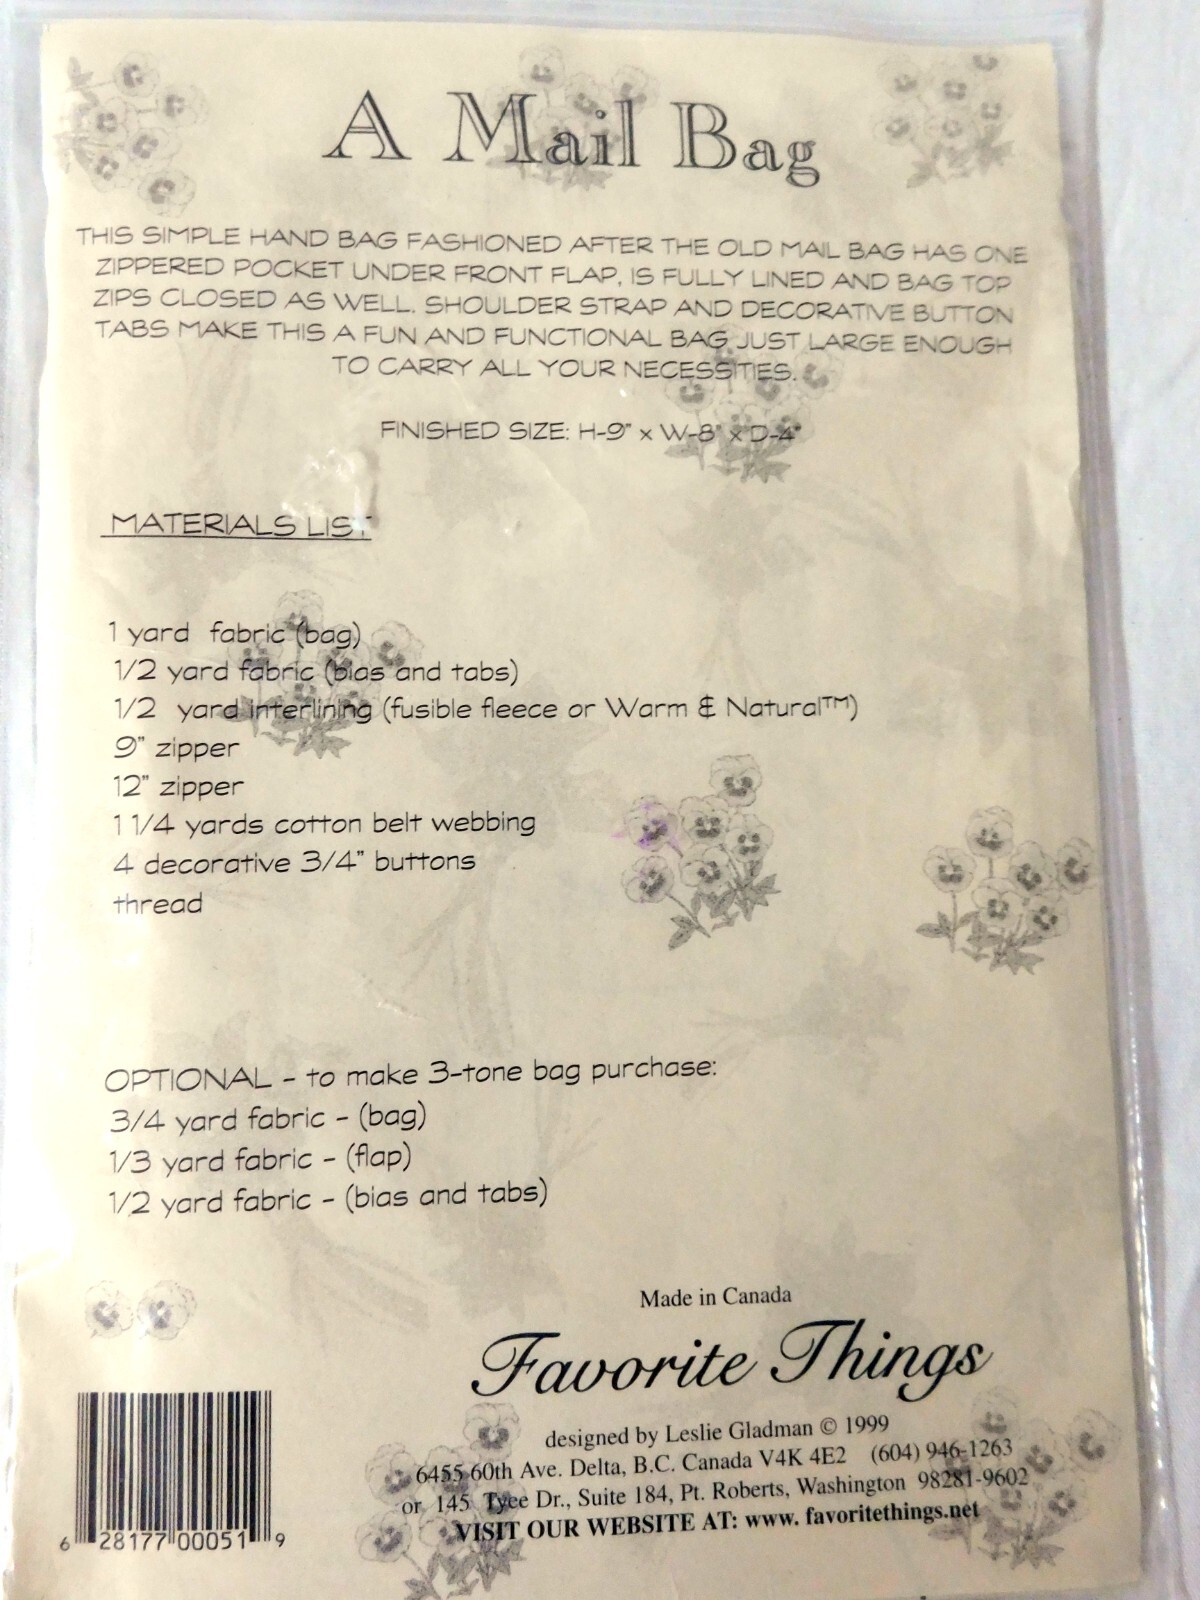 A Mail Bag
THIS SIMPLE HAND BAG FASHIONED AFTER THE OLD MAIL BAG HAS ONE
ZIPPERED POCKET UNDER FRONT FLAP, IS FULLY LINED AND BAG TOP
ZIPS CLOSED AS WELL. SHOULDER STRAP AND DECORATIVE BUTTON
TABS MAKE THIS A FUN AND FUNCTIONAL BAG JUST LARGE ENOUGH
TO CARRY ALL YOUR NECESSITIES.
FINISHED SIZE: H-9" x W-8" x D-4"
MATERIALS LIST
1 yard fabric (bag)
1/2 yard fabric (bias and tabs)
1/2 yard interlining (fusible fleece or Warm & Natural™)
9" zipper
12" zipper
1 1/4 yards cotton belt webbing
4 decorative 3/4" buttons
thread
OPTIONAL - to make 3-tone bag purchase:
3/4 yard fabric - (bag)
1/3 yard fabric - (flap)
1/2 yard fabric - (bias and tabs)
Made in Canada
Favorite Things
designed by Leslie Gladman © 1999
6455 60th Ave. Delta, B.C. Canada V4K 4E2 (604) 946-1263
or 145 Tyee Dr., Suite 184, Pt. Roberts, Washington 98281-9602
VISIT OUR WEBSITE AT: www. favoritethings.net
6 28177 00051 9